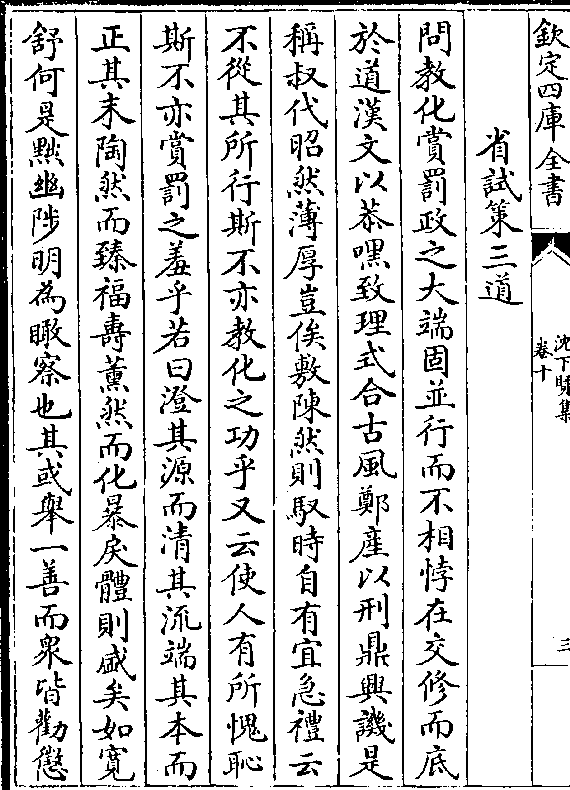 欽定四庫全書
沈下賢集
卷十
三
省試策三道
問教化賞罰政之大端固並行而不相悖在交修而底
於道漢文以恭嘿致理式合古風鄭產以刑鼎興譏是
稱叔代昭然薄厚豈俟敷陳然則馭時自有宜急禮云
不從其所行斯不亦教化之功乎又云使人有所愧恥
斯不亦賞罰之羞乎若曰澄其源而清其流端其本而
正其末陶然而臻福壽薰然而化暴戾體則盛矣如寛
舒何是黙幽陟明為瞰察也其或舉一善而衆皆勸懲